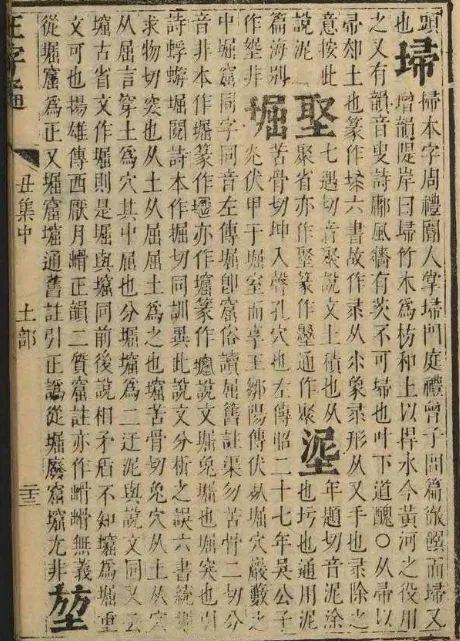 頭 埽 掃本字周禮閽人掌掃門庭禮曾子問篇徹饌而掃又
也 增韻隄岸曰埽竹木爲枋土以捍水今黃河之役用
之又有韻音叟詩鄘風牆有茨不可埽也叶下道醜○从帚以
帚土也篆作六書故作从象形从又手也除之
意按此 埾 七遇切音聚說文土積也从土 埿 年題切音泥塗
說泥 聚省亦作篆作通作聚 也圬也通用泥
篇海刪 堀 苦骨切坤入聲孔穴也左傳昭二十七年吳公子
作埿非 光伏甲于堀室而享王鄒陽傳伏死堀穴巖藪之
中堀窟同字同音左傳堀卽窟俗讀屈舊註渠勿苦骨二切分
音非本作堀篆作亦作篆作說文堀兔堀也堀突也引
詩蜉蝣堀閱詩本作掘切同訓異此說文分析之誤六書統
求物切突也从土从屈屈土爲之也苦骨切兔穴从土从
从屈言穿土爲穴其中屈也分堀爲二迂泥與說文同又云
古省文作堀則是堀與同前後說相矛盾不知爲堀重
文可也揚雄傳西厭月正韻二質窟註亦作無義
從堀窟爲正又堀窟通舊註引正譌從堀廢窟尤非 堃
正字通 丑集中 土部 二三